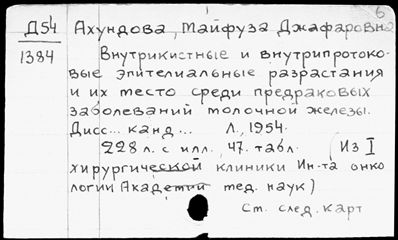 6
Д54 Ахундова, Майфуза Джафаровна
1384
Внутрикистные и внутрипротоко-
вые эпителиальные разрастания
и их место среди предраковых
заболеваний молочной железы.
Дисс... канд... Л., 1954.
228 л. с илл., 47. табл. (Из I
хирургической клиники Ин-та онко
логии Академии мед. наук)
См. след. карт